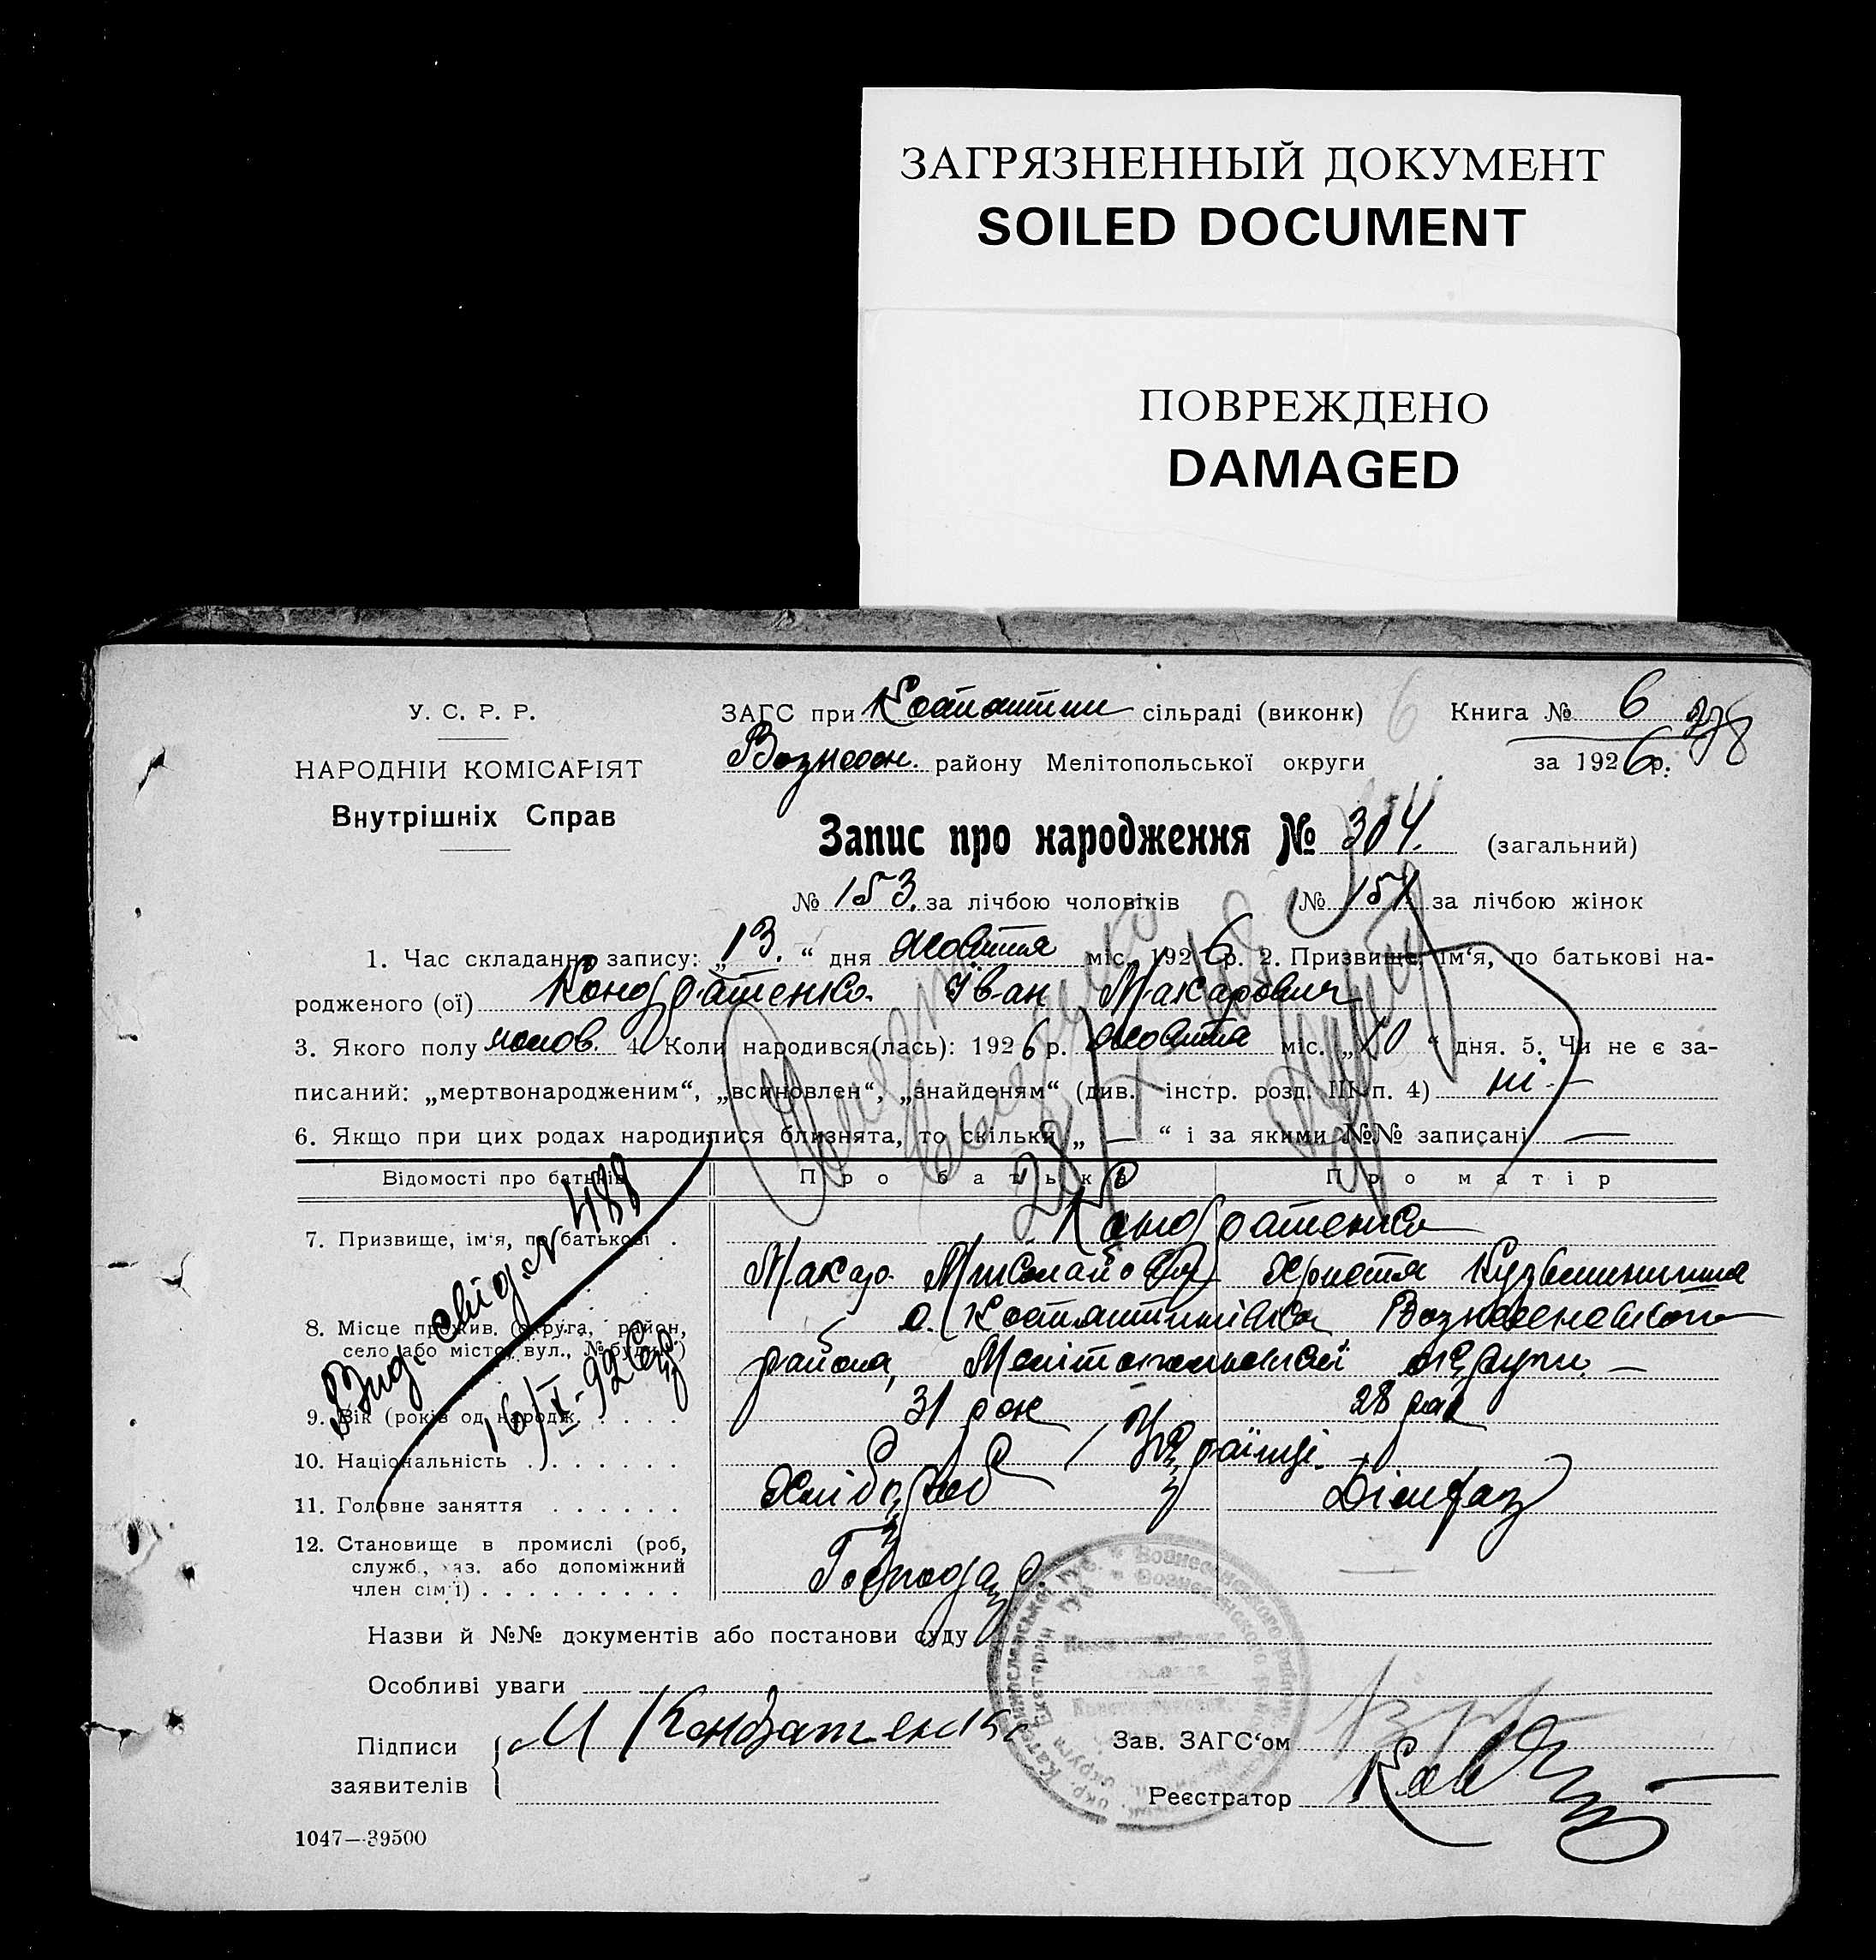 ЗАГРЯЗНЕННЫЙ ДОКУМЕНТ
SOILED DOCUMENT
ПОВРЕЖДЕНО
DAMAGED
У. С. Р. Р.
НАРОДНІЙ КОМІСАРІЯТ
Внутрішніх Справ
ЗАГС при Костянтин сільраді (виконк) 6 Книга № 6
Вознесен. району Мелітопольської округи за 1926 р.
Запис про народження № 304. (загальний)
№ 153. за лічбою чоловіків № 151 за лічбою жінок
1. Час складання запису: „13.“ дня жовтня міс. 1926 р. 2. Призвище, ім'я, по батькові на-
родженого (ої) Кондратенко Іван Макарович
3. Якого полу чолов. 4. Коли народився(лась): 1926 р. жовтня міс. „10“ дня. 5. Чи не є за-
писаний: „мертвонародженим“, „всиновлен“, „знайденям“ (див. інстр. розд. III п. 4) ні —
6. Якщо при цих родах народилися близнята, то скільки „—“ і за якими №№ записані —
Відомості про батьків Про батька Про матір
7. Призвище, ім'я, по батькові . Кондратенко
Макар Миколайович Христя Кузьминишна
8. Місце прожив. (округа, район, село або місто, вул., № будин.) с. Костянтинівка Вознесенського
района, Мелітопольської округи. —
9. Вік (років од народж. . . . . . 31 рок 28 рок
10. Національність . . . . . . . Українці.
11. Головне заняття . . . . . . Хлібороб
12. Становище в промислі (роб, служб., хаз. або допоміжний член сім'ї) . . . . . . . . . Господар.
Вид. свид. N 488
Назви й №№ документів або постанови суду
Особливі уваги
Підписи заявителів М Кондратенко
Зав. ЗАГС'ом
Реєстратор
1047—39500